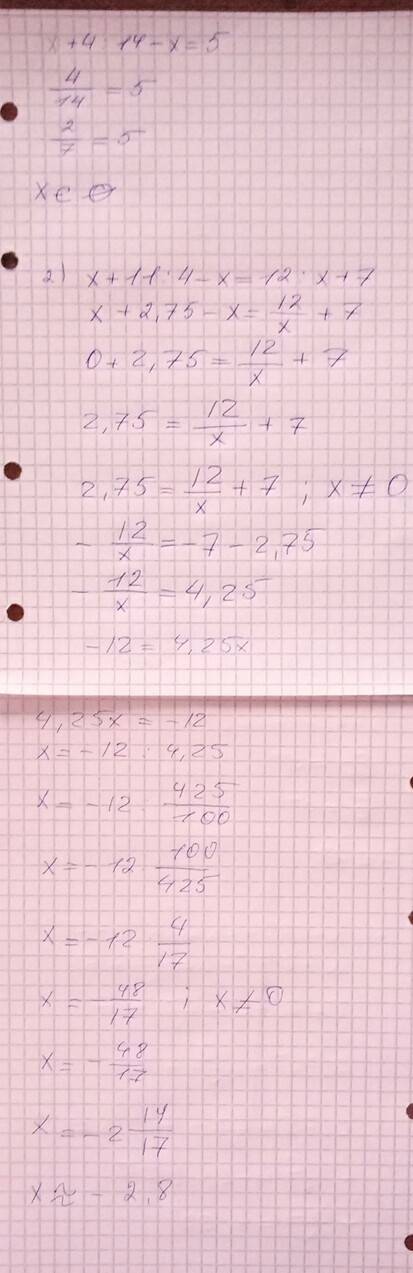 x+4 : 14-x=5
4/14 = 5
2/7 = 5
x∈ ∅
2) x+11:4-x=12:x+7
x+2,75-x=12/x+7
0+2,75=12/x+7
2,75=12/x+7
2,75=12/x+7 ; x≠0
-12/x=-7-2,75
-12/x=4,25
-12=4,25x
4,25x=-12
x=-12:4,25
x=-12:425/100
x=-12·100/425
x=-12·4/17
x=-48/17 ; x≠0
x=-48/17
x=-2 14/17
x≈-2,8